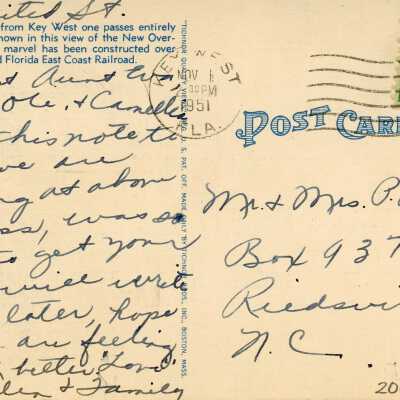 ited St.
from Key West one passes entirely
hown in this view of the New Over-
marvel has been constructed over
d Florida East Coast Railroad.
t Aunt Eva,
ole, & Camella
this note to
we are
ng at above
ss, was so
to get your
will write
later, hope
are feeling
better. Love
len & Family
"TICHNOR QUALITY VIEWS," REG. U. S. PAT. OFF. MADE ONLY BY TICHNOR BROS., INC., BOSTON, MASS.
KEY WEST
NOV 1
PM
1951
FLA.
POST CARD
Mr. & Mrs. P.
Box 937
Riedsvi
N.C
20